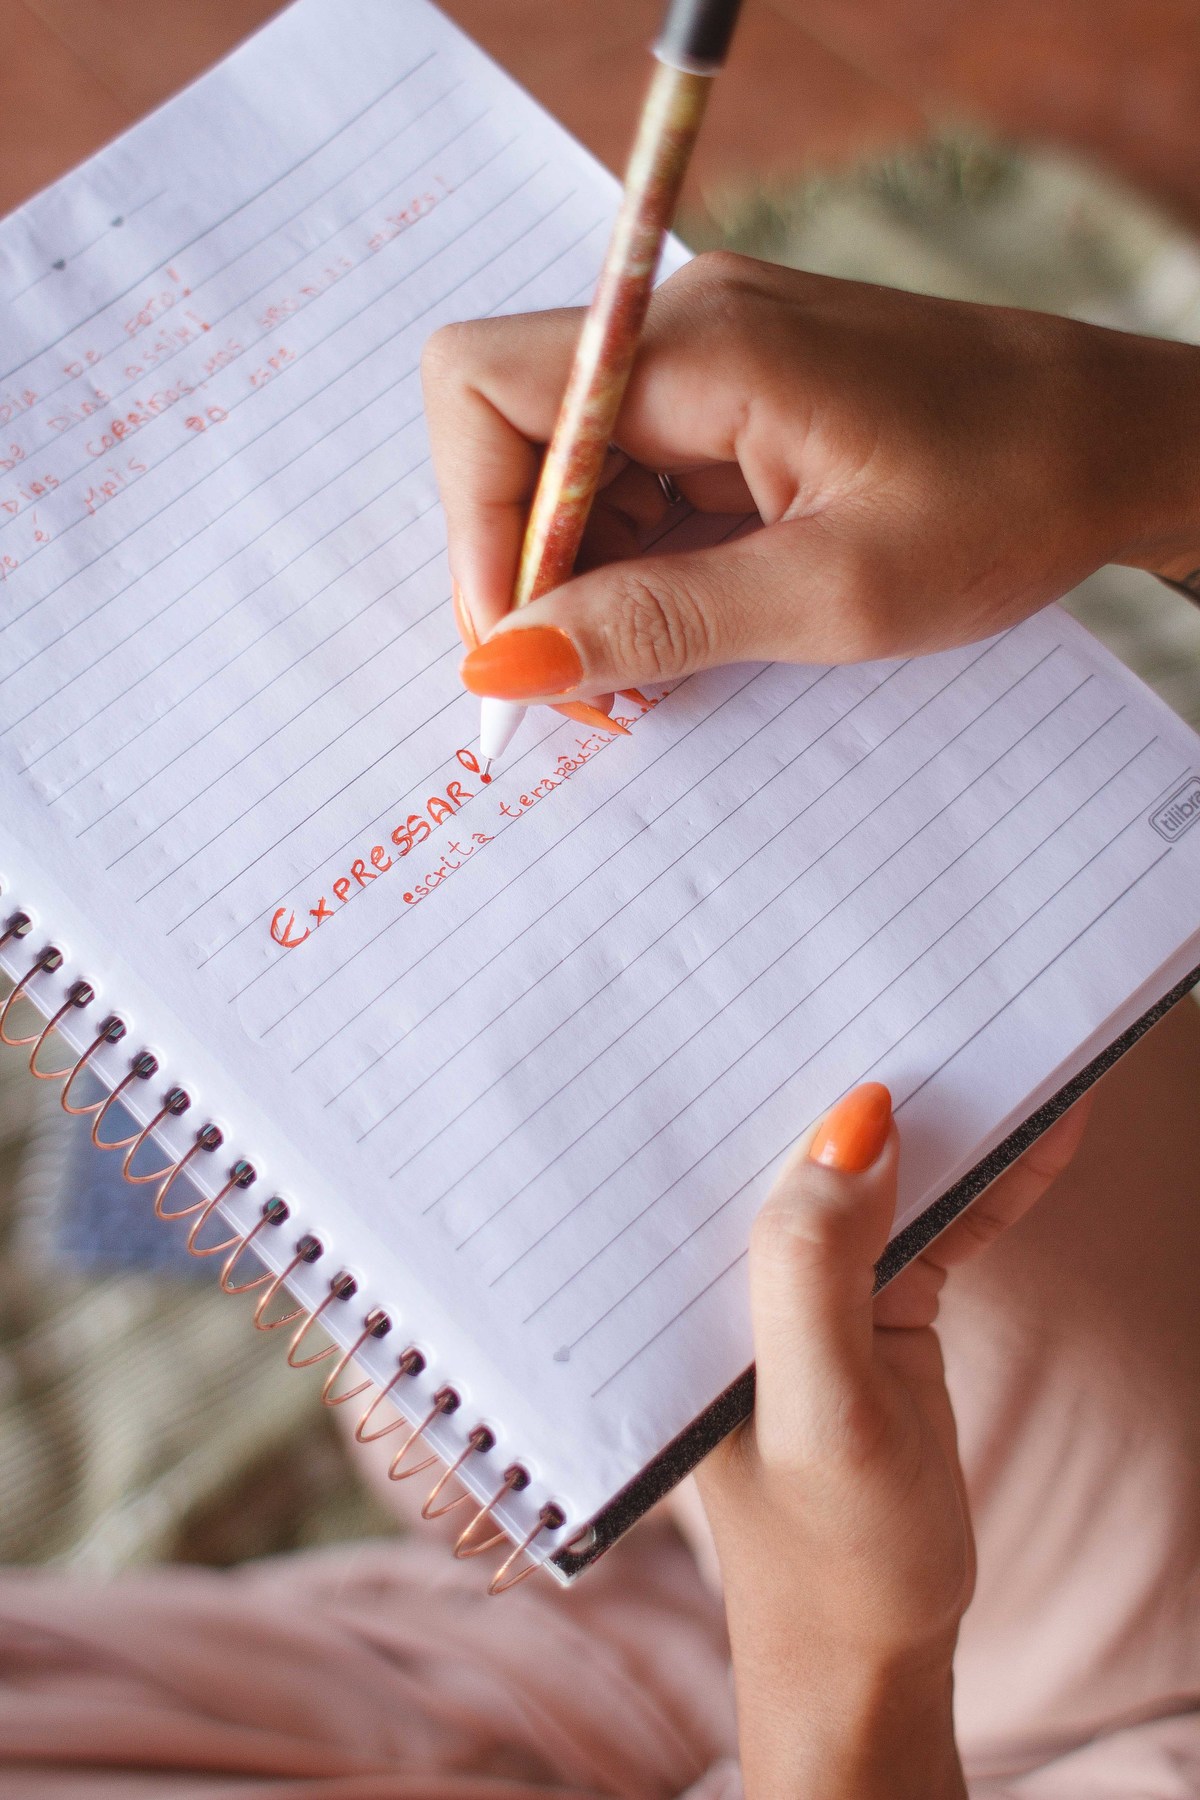 DIA DE FOTO!
DE DIAS ASSIM!
DIAS CORRIDOS, MAS SEGUNDOS
É MAIS DO QUE
EXPRESSAR!
escrita terapêutica...
tilibra